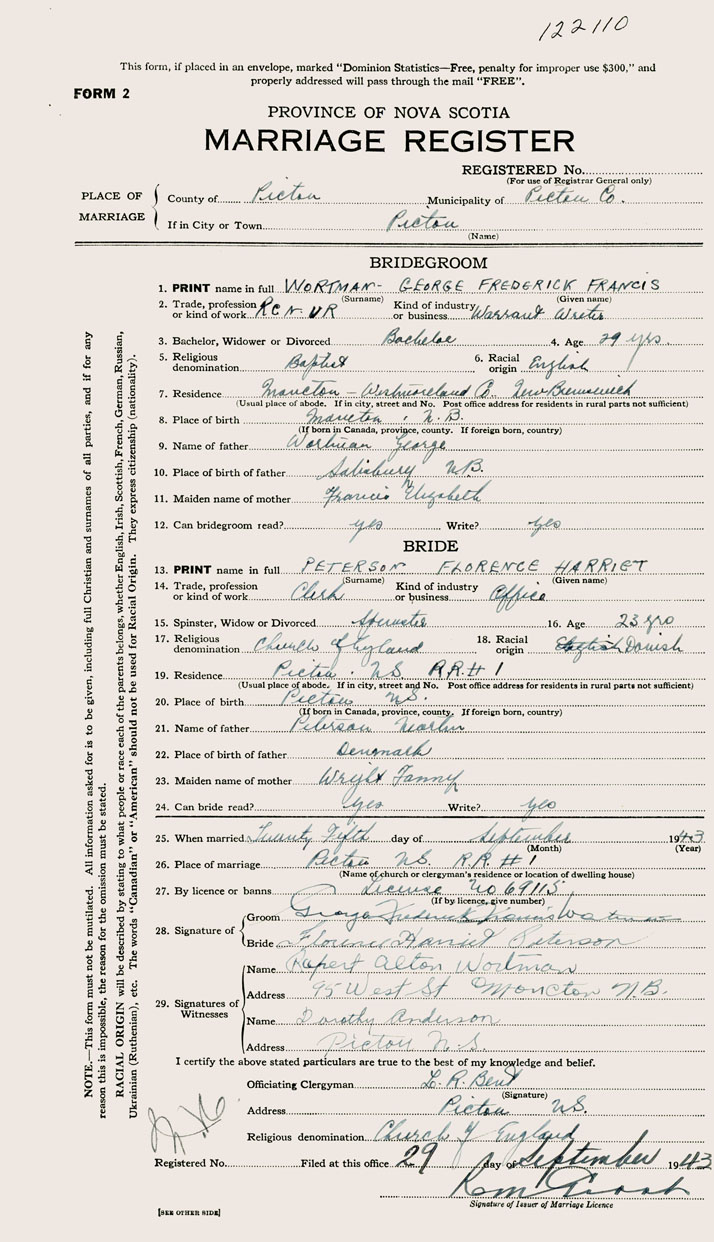 122110
This form, if placed in an envelope, marked "Dominion Statistics—Free, penalty for improper use $300," and
properly addressed will pass through the mail "FREE".
FORM 2
PROVINCE OF NOVA SCOTIA
MARRIAGE REGISTER
REGISTERED No.
(For use of Registrar General only)
PLACE OF MARRIAGE
County of Pictou Municipality of Pictou Co.
If in City or Town Pictou
(Name)
BRIDEGROOM
1. PRINT name in full WORTMAN- GEORGE FREDERICK FRANCIS
(Surname) (Given name)
2. Trade, profession or kind of work RCNVR Kind of industry or business Warrant Writer
3. Bachelor, Widower or Divorced Bachelor 4. Age 29 yrs.
5. Religious denomination Baptist 6. Racial origin English
7. Residence Moncton - Westmoreland Co. New Brunswick
(Usual place of abode. If in city, street and No. Post office address for residents in rural parts not sufficient)
8. Place of birth Moncton, N.B.
(If born in Canada, province, county. If foreign born, country)
9. Name of father Wortman George
10. Place of birth of father Salisbury N.B.
11. Maiden name of mother Francis Elizabeth
12. Can bridegroom read? yes Write? yes
BRIDE
13. PRINT name in full PETERSON FLORENCE HARRIET
(Surname) (Given name)
14. Trade, profession or kind of work Clerk Kind of industry or business Office
15. Spinster, Widow or Divorced Spinster 16. Age 23 yrs
17. Religious denomination Church of England 18. Racial origin English Danish
19. Residence Pictou. N.S. R.R.# 1
(Usual place of abode. If in city, street and No. Post office address for residents in rural parts not sufficient)
20. Place of birth Pictou N.S.
(If born in Canada, province, county. If foreign born, country)
21. Name of father Peterson
22. Place of birth of father Denmark
23. Maiden name of mother Wright Fanny
24. Can bride read? yes Write? yes
25. When married Twenty Fifth day of September 1943
(Month) (Year)
26. Place of marriage Pictou N.S. R.R.# 1
(Name of church or clergyman's residence or location of dwelling house)
27. By licence or banns License No 69115
(If by licence, give number)
28. Signature of
Groom George Frederick Francis Wortman
Bride Florence Harriet Peterson
29. Signatures of Witnesses
Name Rupert Alton Wortman
Address 95 West St Moncton N.B.
Name Dorothy Anderson
Address Pictou N.S.
I certify the above stated particulars are true to the best of my knowledge and belief.
Officiating Clergyman L. R. Bent
(Signature)
Address Pictou N.S.
Religious denomination Church of England
Registered No. Filed at this office 29 day of September 1943
Signature of Issuer of Marriage Licence
[SEE OTHER SIDE]
NOTE.—This form must not be mutilated. All information asked for is to be given, including full Christian and surnames of all parties, and if for any
reason this is impossible, the reason for the omission must be stated.
RACIAL ORIGIN will be described by stating to what people or race each of the parents belongs, whether English, Irish, Scottish, French, German, Russian,
Ukrainian (Ruthenian), etc. The words "Canadian" or "American" should not be used for Racial Origin. They express citizenship (nationality).